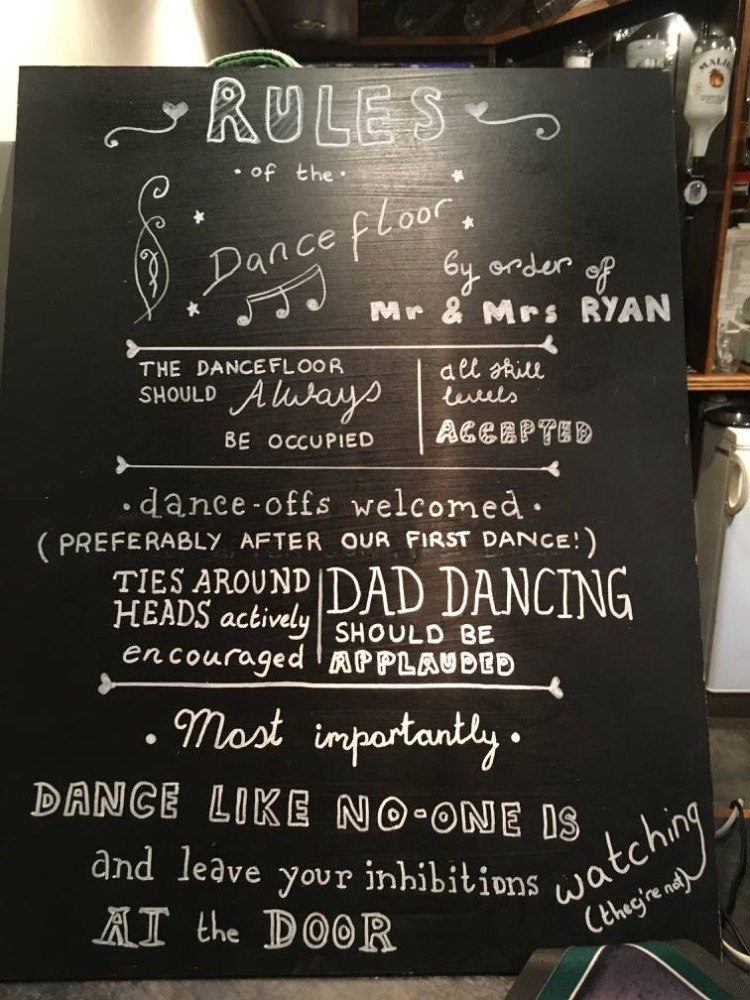 RULES
• of the •
Dancefloor
by order of
Mr & Mrs RYAN
THE DANCEFLOOR
SHOULD Always
BE OCCUPIED
all skill
levels
ACCEPTED
• dance-offs welcomed •
(PREFERABLY AFTER OUR FIRST DANCE!)
TIES AROUND
HEADS actively
encouraged
DAD DANCING
SHOULD BE
APPLAUDED
• Most importantly •
DANCE LIKE NO-ONE IS
watching
(they're not)
and leave your inhibitions
AT the DOOR
MALIBU